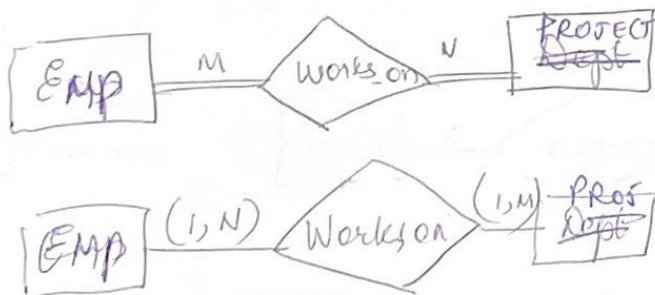 Emp M Works_on N PROJECT
Dept
Emp (1,N) Works on (1,M) PROJ
Dept